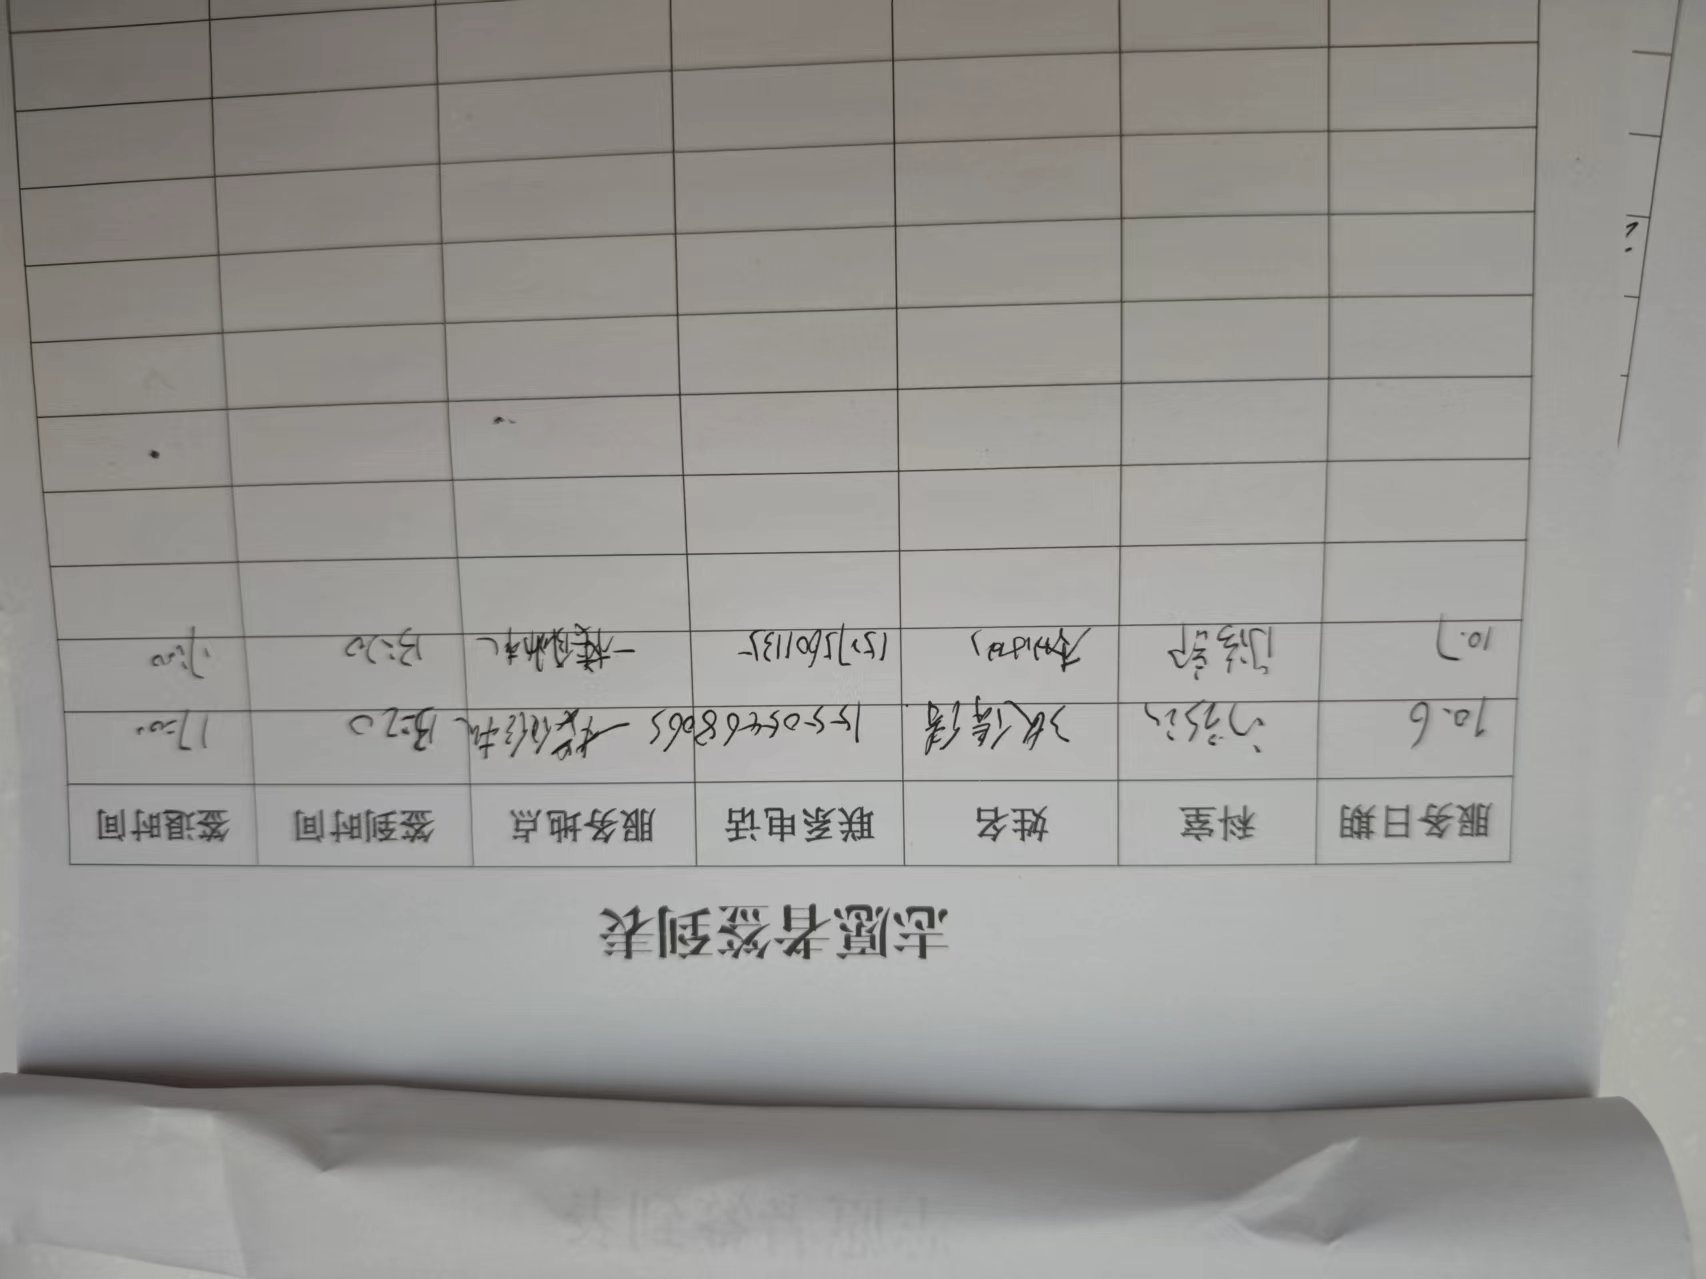 志愿者签到表
服务日期 科室 姓名 联系电话 服务地点 签到时间 签退时间
10.6 15505468065 13:20 17:00
10.7 门诊部 15275601135 13:20 17:00